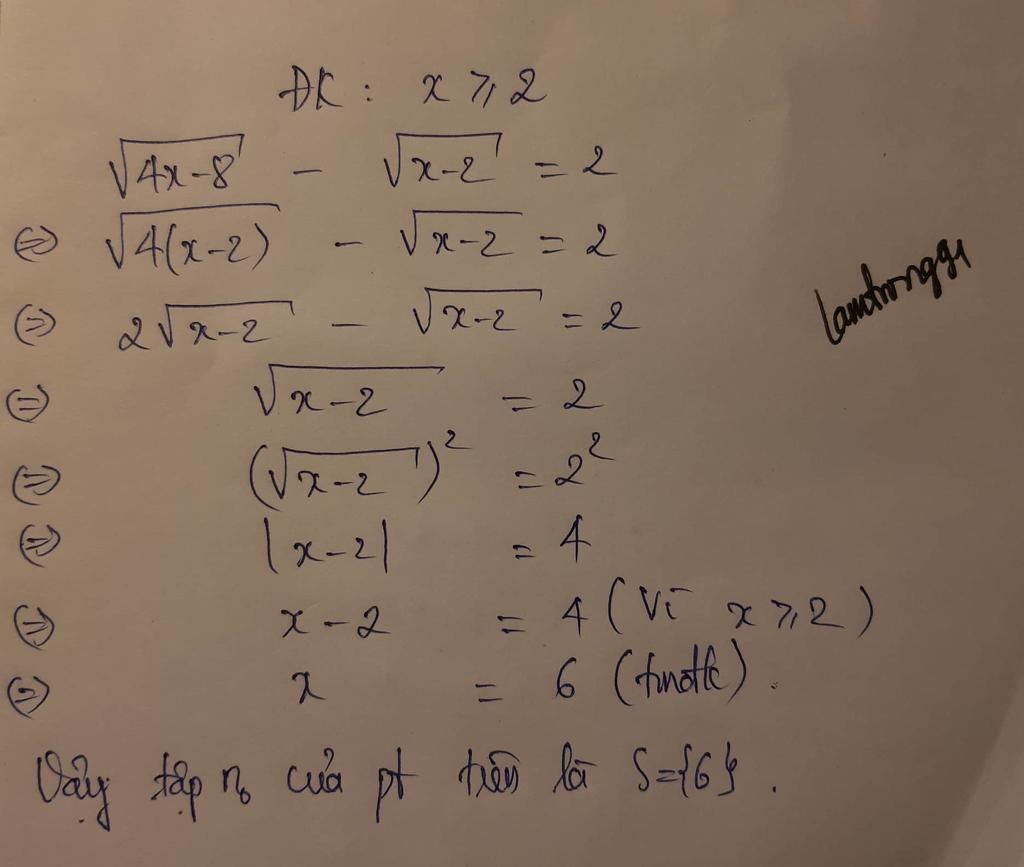 ĐK: x ⩾ 2
√(4x-8) - √(x-2) = 2
⇔ √(4(x-2)) - √(x-2) = 2
⇔ 2√(x-2) - √(x-2) = 2
⇔ √(x-2) = 2
⇔ (√(x-2))² = 2²
⇔ |x-2| = 4
⇔ x-2 = 4 (Vì x ⩾ 2)
⇔ x = 6 (tmđk).
Vậy tập n₀ của pt trên là S={6}.